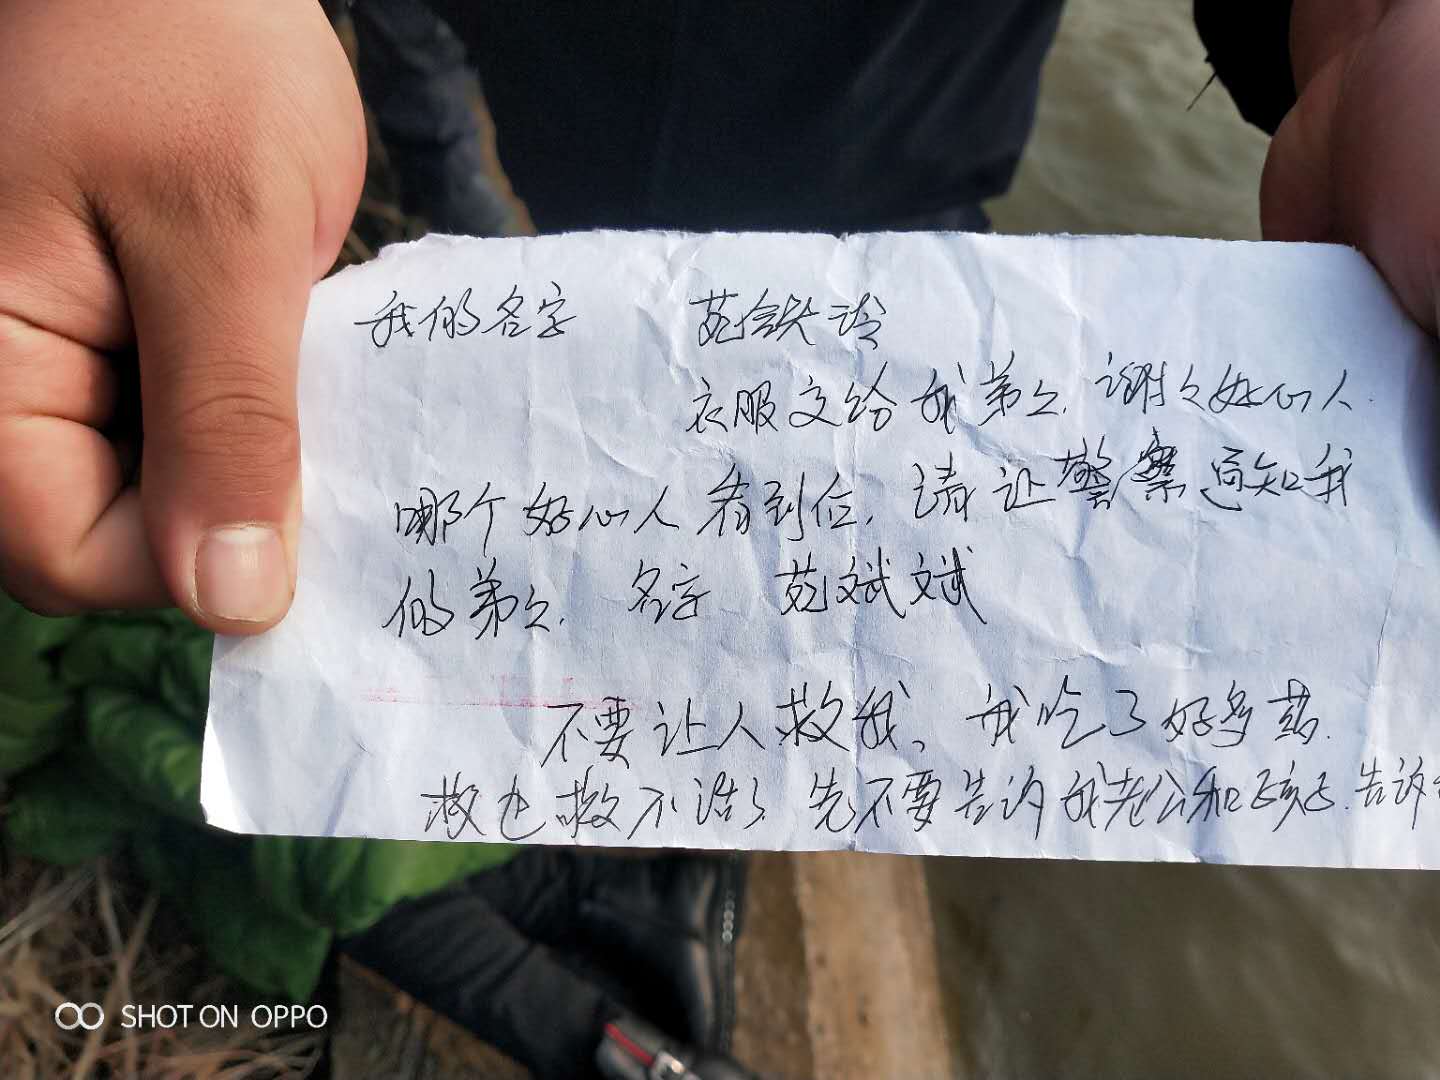 我的名字 苑铁玲
衣服交给我弟弟.谢谢好心人.
哪个好心人看到位,请让警察通知我
的弟弟.名字 苑斌斌
不要让人救我。我吃了好多药.
救也救不活了.先不要告诉我老公和孩子.告诉
SHOT ON OPPO